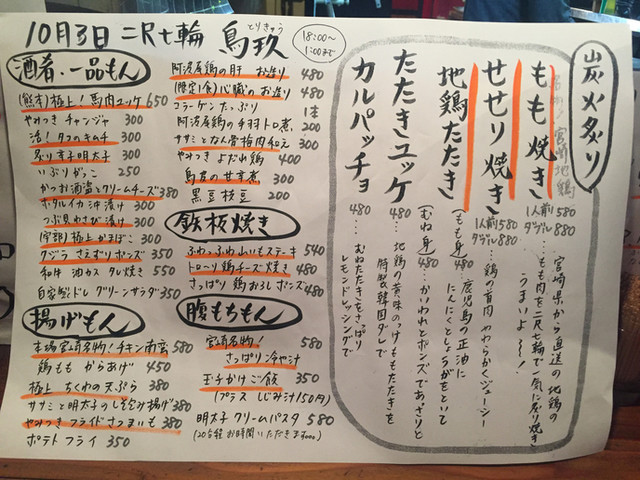 10月3日 二尺七輪 鳥玖
とりきゅう
18:00〜
1:00まで
酒肴・一品もん
(熊本)極上!馬肉ユッケ 650
やみつき チャンジャ 300
活!タコのキムチ 300
炙り辛子明太子 300
いぶりがっこ 250
かつお酒盗とクリームチーズ 380
ホタルイカ沖漬け 300
つぶ貝わさび漬け 300
(宇部)極上かまぼこ 300
クジラ さえずりポンズ 350
和牛 油カス タレ焼き 550
自家製ドレ グリーンサラダ 350
揚げもん
本場宮崎名物!チキン南蛮 580
鶏もも からあげ 450
極上 ちくわの天ぷら 380
ササミと明太子のしそ包み揚げ 380
やみつきフライドさつまいも 380
ポテトフライ 350
阿波尾鶏の肝 お造り 480
(限定1食)心臓のお造り 480
コラーゲンたっぷり 1本
阿波尾鶏の手羽トロ煮 200
ササミとなん骨梅肉和え 300
やみつき よだれ鶏 400
鳥皮の甘辛煮 300
黒豆枝豆 200
鉄板焼き
ふわっふわ山いもステーキ 540
トロ〜リ鶏チーズ焼き 480
さっぱり 鶏おろしポンズ 480
腹もちもん
宮崎名物!
さっぱり冷や汁 580
玉子かけご飯 350
(プラス しじみ汁150円)
明太子クリームパスタ 580
(20分程お時間いただきます。)
炭火炙り
名物!宮崎地鶏
もも焼き
1人前 580
ダブル 880
…宮崎県から直送の地鶏の
もも肉を二尺七輪で一気に炙り焼き
うまいよ〜!
せせり焼き
1人前 580
ダブル 880
…鶏の首肉 やわらかくジューシー
地鶏たたき
(もも身) 480
…鹿児島の正油に
にんにくとしょうがをといて
(むね身) 480
…かいわれとポンズであっさりと
たたきユッケ
480…地鶏の黄味のっけ ももたたきを
特製韓国ダレで
カルパッチョ
480…むねたたきをさっぱり
レモンドレッシングで